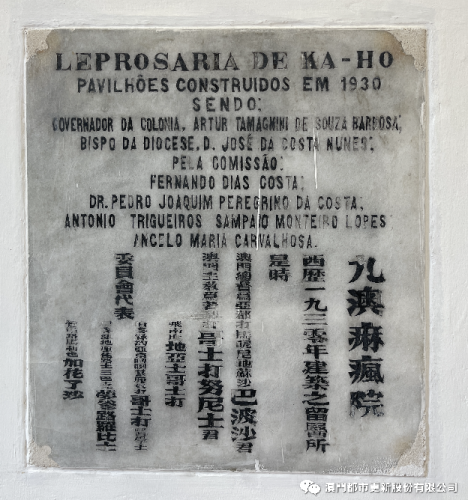 LEPROSARIA DE KA-HO
PAVILHÕES CONSTRUIDOS EM 1930
SENDO:
GOVERNADOR DA COLONIA, ARTUR TAMAGNINI DE SOUZA BARBOSA;
BISPO DA DIOCESE, D. JOSÉ DA COSTA NUNES;
PELA COMISSÃO:
FERNANDO DIAS COSTA;
DR. PEDRO JOAQUIM PEREGRINO DA COSTA;
ANTONIO TRIGUEIROS SAMPAIO MONTEIRO LOPES
ANGELO MARIA CARVALHOSA.
九澳痳瘋院
西歷一九三零年建築之留醫所
是時
澳門總督 巴波沙君
澳門主教 哥士打努尼士君
委員會代表
地亞士哥士打
哥士打
羅比士
加花了沙
澳門都市更新股份有限公司